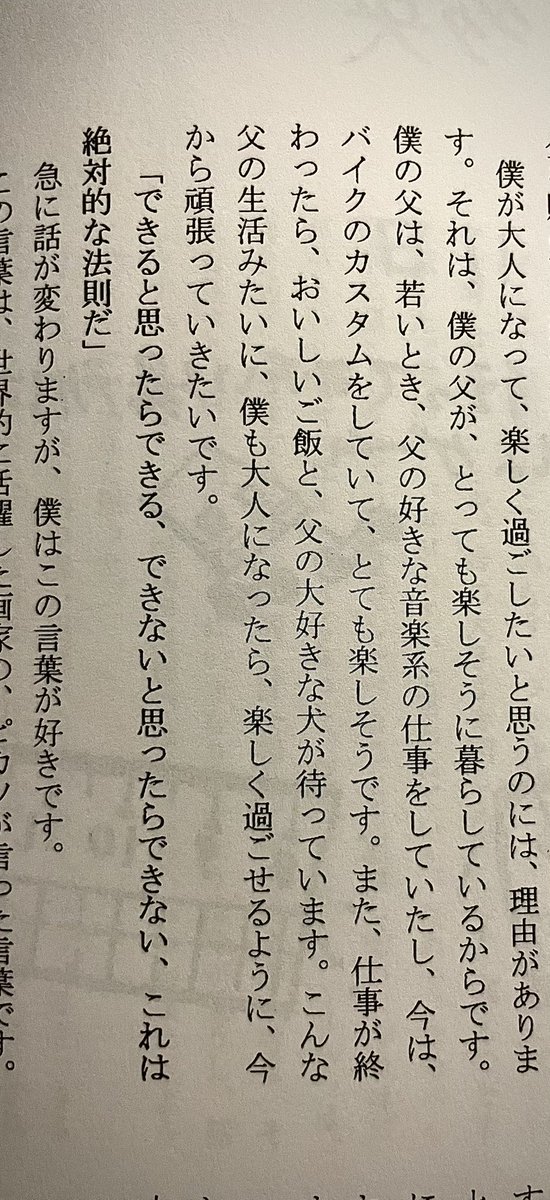 僕が大人になって、楽しく過ごしたいと思うのには、理由がありま
す。それは、僕の父が、とっても楽しそうに暮らしているからです。
僕の父は、若いとき、父の好きな音楽系の仕事をしていたし、今は、
バイクのカスタムをしていて、とても楽しそうです。また、仕事が終
わったら、おいしいご飯と、父の大好きな犬が待っています。こんな
父の生活みたいに、僕も大人になったら、楽しく過ごせるように、今
から頑張っていきたいです。
「できると思ったらできる、できないと思ったらできない、これは
絶対的な法則だ」
急に話が変わりますが、僕はこの言葉が好きです。
この言葉は、世界的に活躍した画家の、ピカソが言った言葉です。